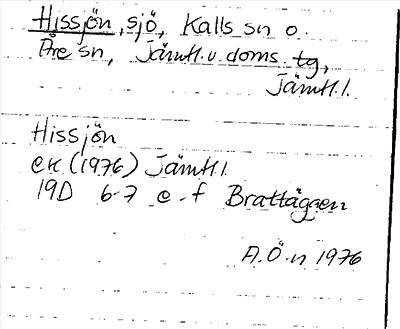 Hissjön, sjö, Kalls sn o.
Åre sn, Jämtl. v. doms. tg,
Jämtl. l.
Hissjön
ek (1976) Jämtl. l.
19D 6-7 e-f Brattäggen
A.Ö-n 1976